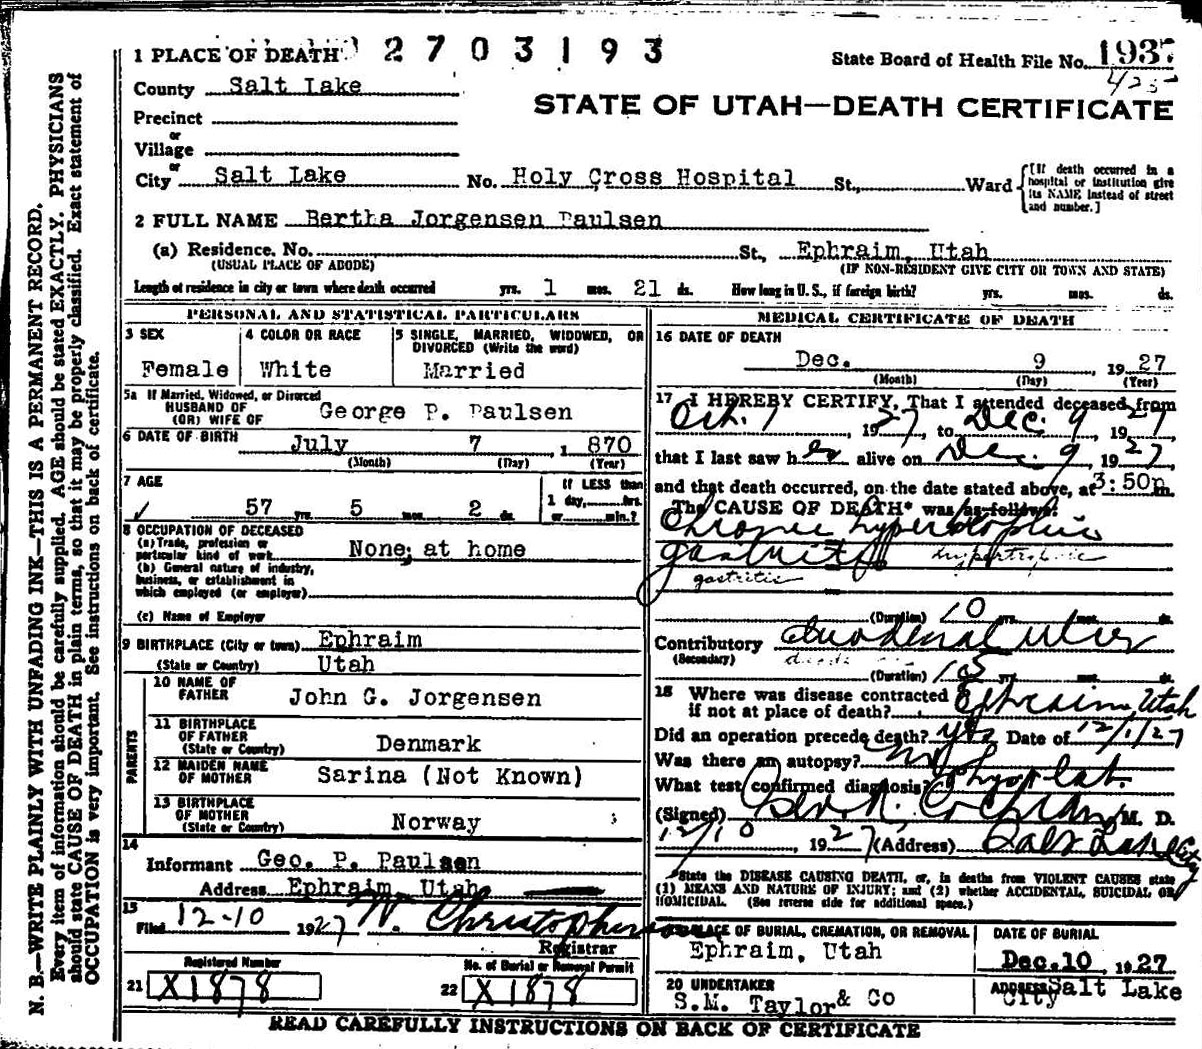 N. B.—WRITE PLAINLY WITH UNFADING INK—THIS IS A PERMANENT RECORD.
Every item of information should be carefully supplied. AGE should be stated EXACTLY. PHYSICIANS
should state CAUSE OF DEATH in plain terms, so that it may be properly classified. Exact statement of
OCCUPATION is very important. See instructions on back of certificate.
1 PLACE OF DEATH 2 7 0 3 1 9 3
State Board of Health File No. 1937
425
County Salt Lake
STATE OF UTAH—DEATH CERTIFICATE
Precinct
or
Village
or
City Salt Lake No. Holy Cross Hospital St., Ward
[If death occurred in a
hospital or institution give
its NAME instead of street
and number.]
2 FULL NAME Bertha Jorgensen Paulsen
(a) Residence. No. St., Ephraim, Utah
(USUAL PLACE OF ABODE) (IF NON-RESIDENT GIVE CITY OR TOWN AND STATE)
Length of residence in city or town where death occurred yrs. 1 mos. 21 ds. How long in U. S., if foreign birth? yrs. mos. ds.
PERSONAL AND STATISTICAL PARTICULARS
3 SEX 4 COLOR OR RACE 5 SINGLE, MARRIED, WIDOWED, OR
DIVORCED (Write the word)
Female White Married
5a If Married, Widowed, or Divorced
HUSBAND OF
(OR) WIFE OF George P. Paulsen
6 DATE OF BIRTH July 7, 1 870
(Month) (Day) (Year)
7 AGE If LESS than
1 day, hrs.
or min.?
57 yrs. 5 mos. 2 ds.
8 OCCUPATION OF DECEASED
(a) Trade, profession or
particular kind of work None; at home
(b) General nature of industry,
business, or establishment in
which employed (or employer)
(c) Name of Employer
9 BIRTHPLACE (City or town) Ephraim
(State or Country) Utah
PARENTS
10 NAME OF
FATHER John G. Jorgensen
11 BIRTHPLACE
OF FATHER
(State or Country) Denmark
12 MAIDEN NAME
OF MOTHER Sarina (Not Known)
13 BIRTHPLACE
OF MOTHER
(State or Country) Norway
14
Informant Geo. P. Paulsen
Address Ephraim, Utah
15
Filed 12-10 1927 W. Christopherson
Registrar
Registered Number No. of Burial or Removal Permit
21 X1878 22 X1878
MEDICAL CERTIFICATE OF DEATH
16 DATE OF DEATH
Dec. 9, 1927
(Month) (Day) (Year)
17 I HEREBY CERTIFY, That I attended deceased from
Oct. 1, 1927, to Dec. 9, 1927
that I last saw her alive on Dec. 9 1927
and that death occurred, on the date stated above, at 3:50p m.
The CAUSE OF DEATH* was as follows:
Chronic hypertrophic
gastritis hypertrophic
gastritis
(Duration) 10 yrs. mos. ds.
Contributory duodenal ulcer
(Secondary)
(Duration) yrs. mos. ds.
18 Where was disease contracted
if not at place of death? Ephraim, Utah
Did an operation precede death? yes Date of 12/1/27
Was there an autopsy? no
What test confirmed diagnosis? phys & lab.
(Signed) M. D.
12/10, 1927 (Address) Salt Lake City
State the DISEASE CAUSING DEATH, or, in deaths from VIOLENT CAUSES state
(1) MEANS AND NATURE OF INJURY; and (2) whether ACCIDENTAL, SUICIDAL OR
HOMICIDAL. (See reverse side for additional space.)
PLACE OF BURIAL, CREMATION, OR REMOVAL DATE OF BURIAL
Ephraim, Utah Dec. 10, 1927
20 UNDERTAKER ADDRESS Salt Lake
S.M. Taylor & Co City
READ CAREFULLY INSTRUCTIONS ON BACK OF CERTIFICATE